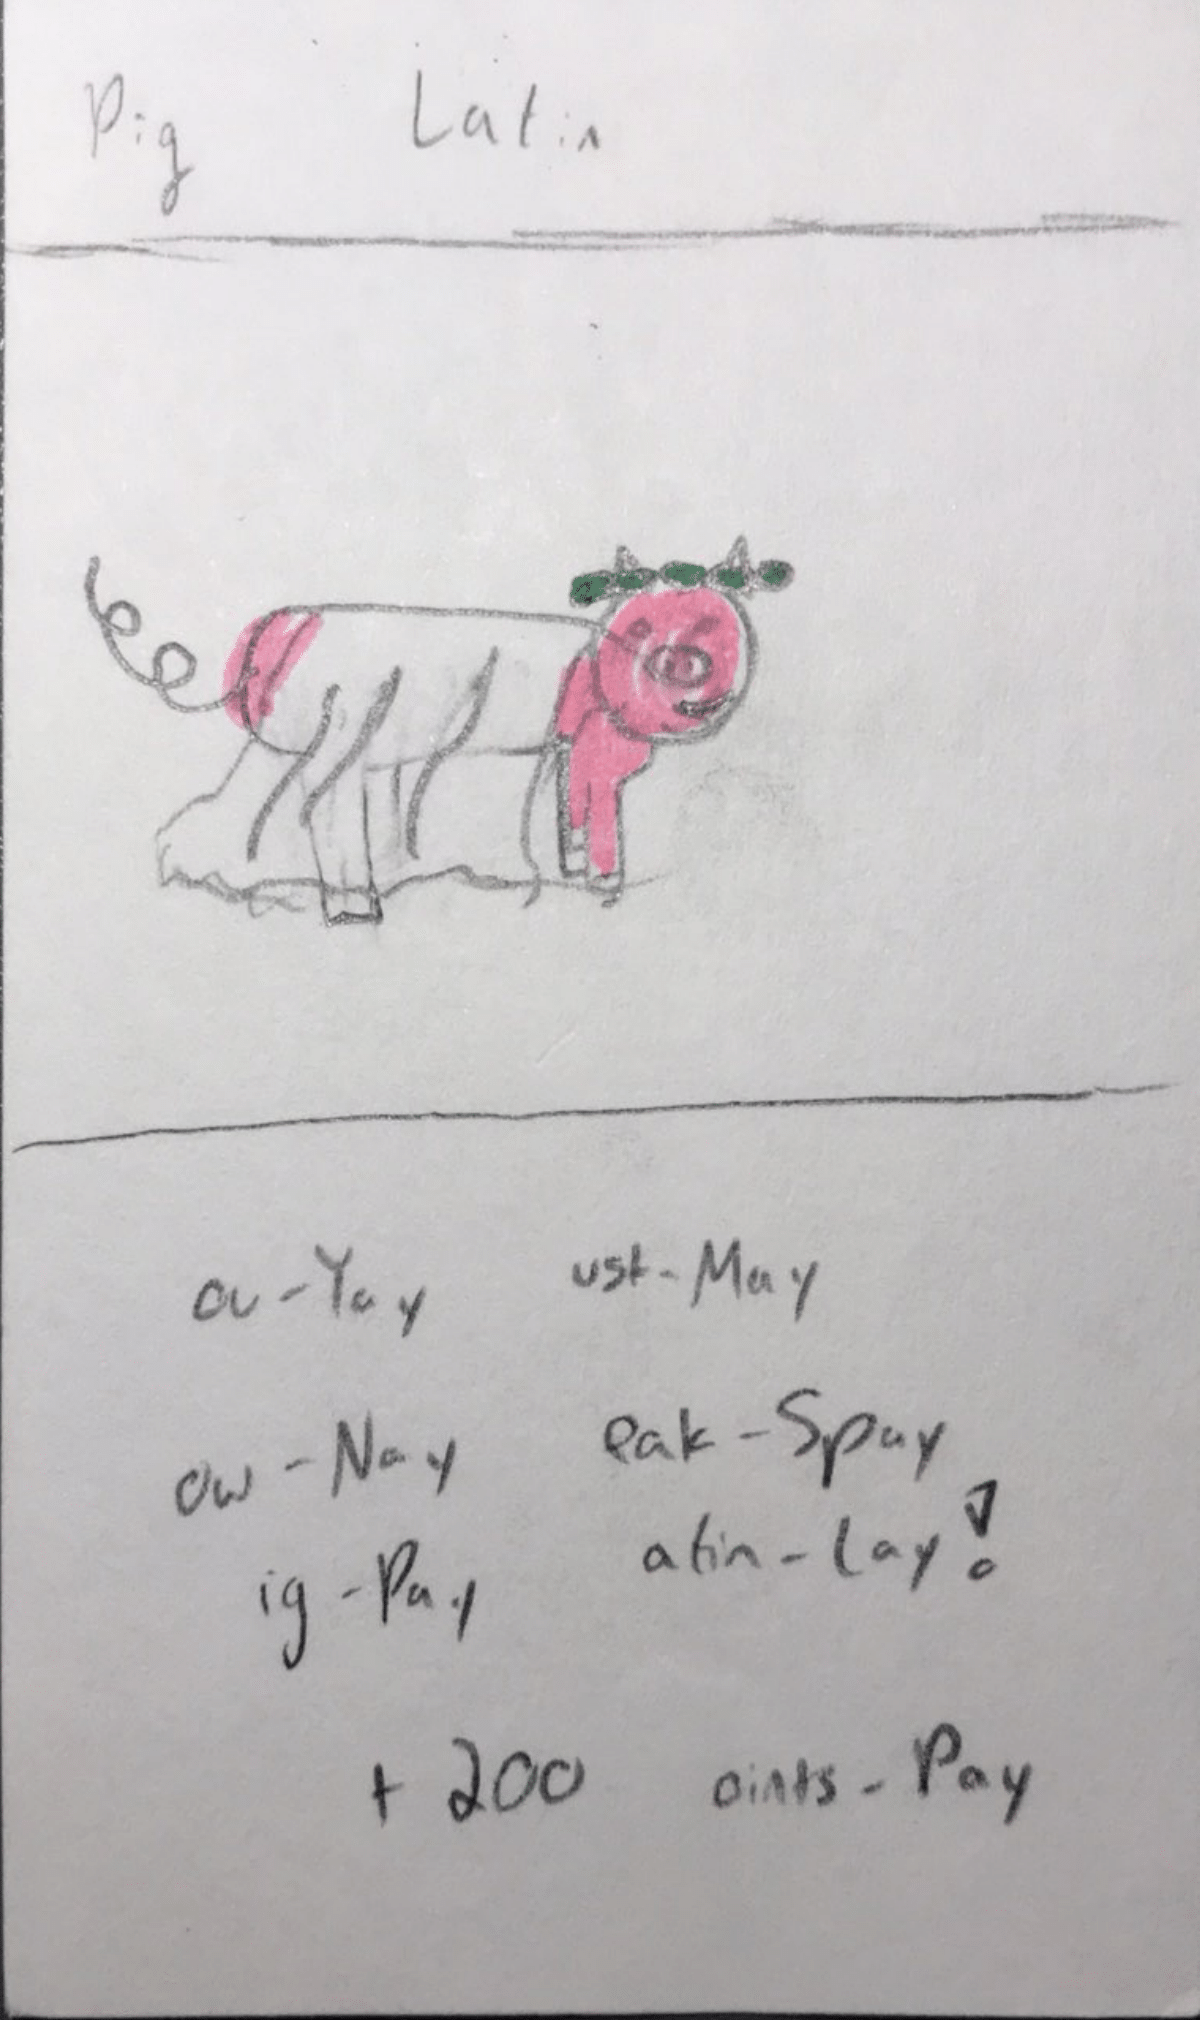 Pig Latin
ou-Yay ust-May
ow-Nay eak-Spay
ig-Pay atin-Lay!
+200 oints-Pay